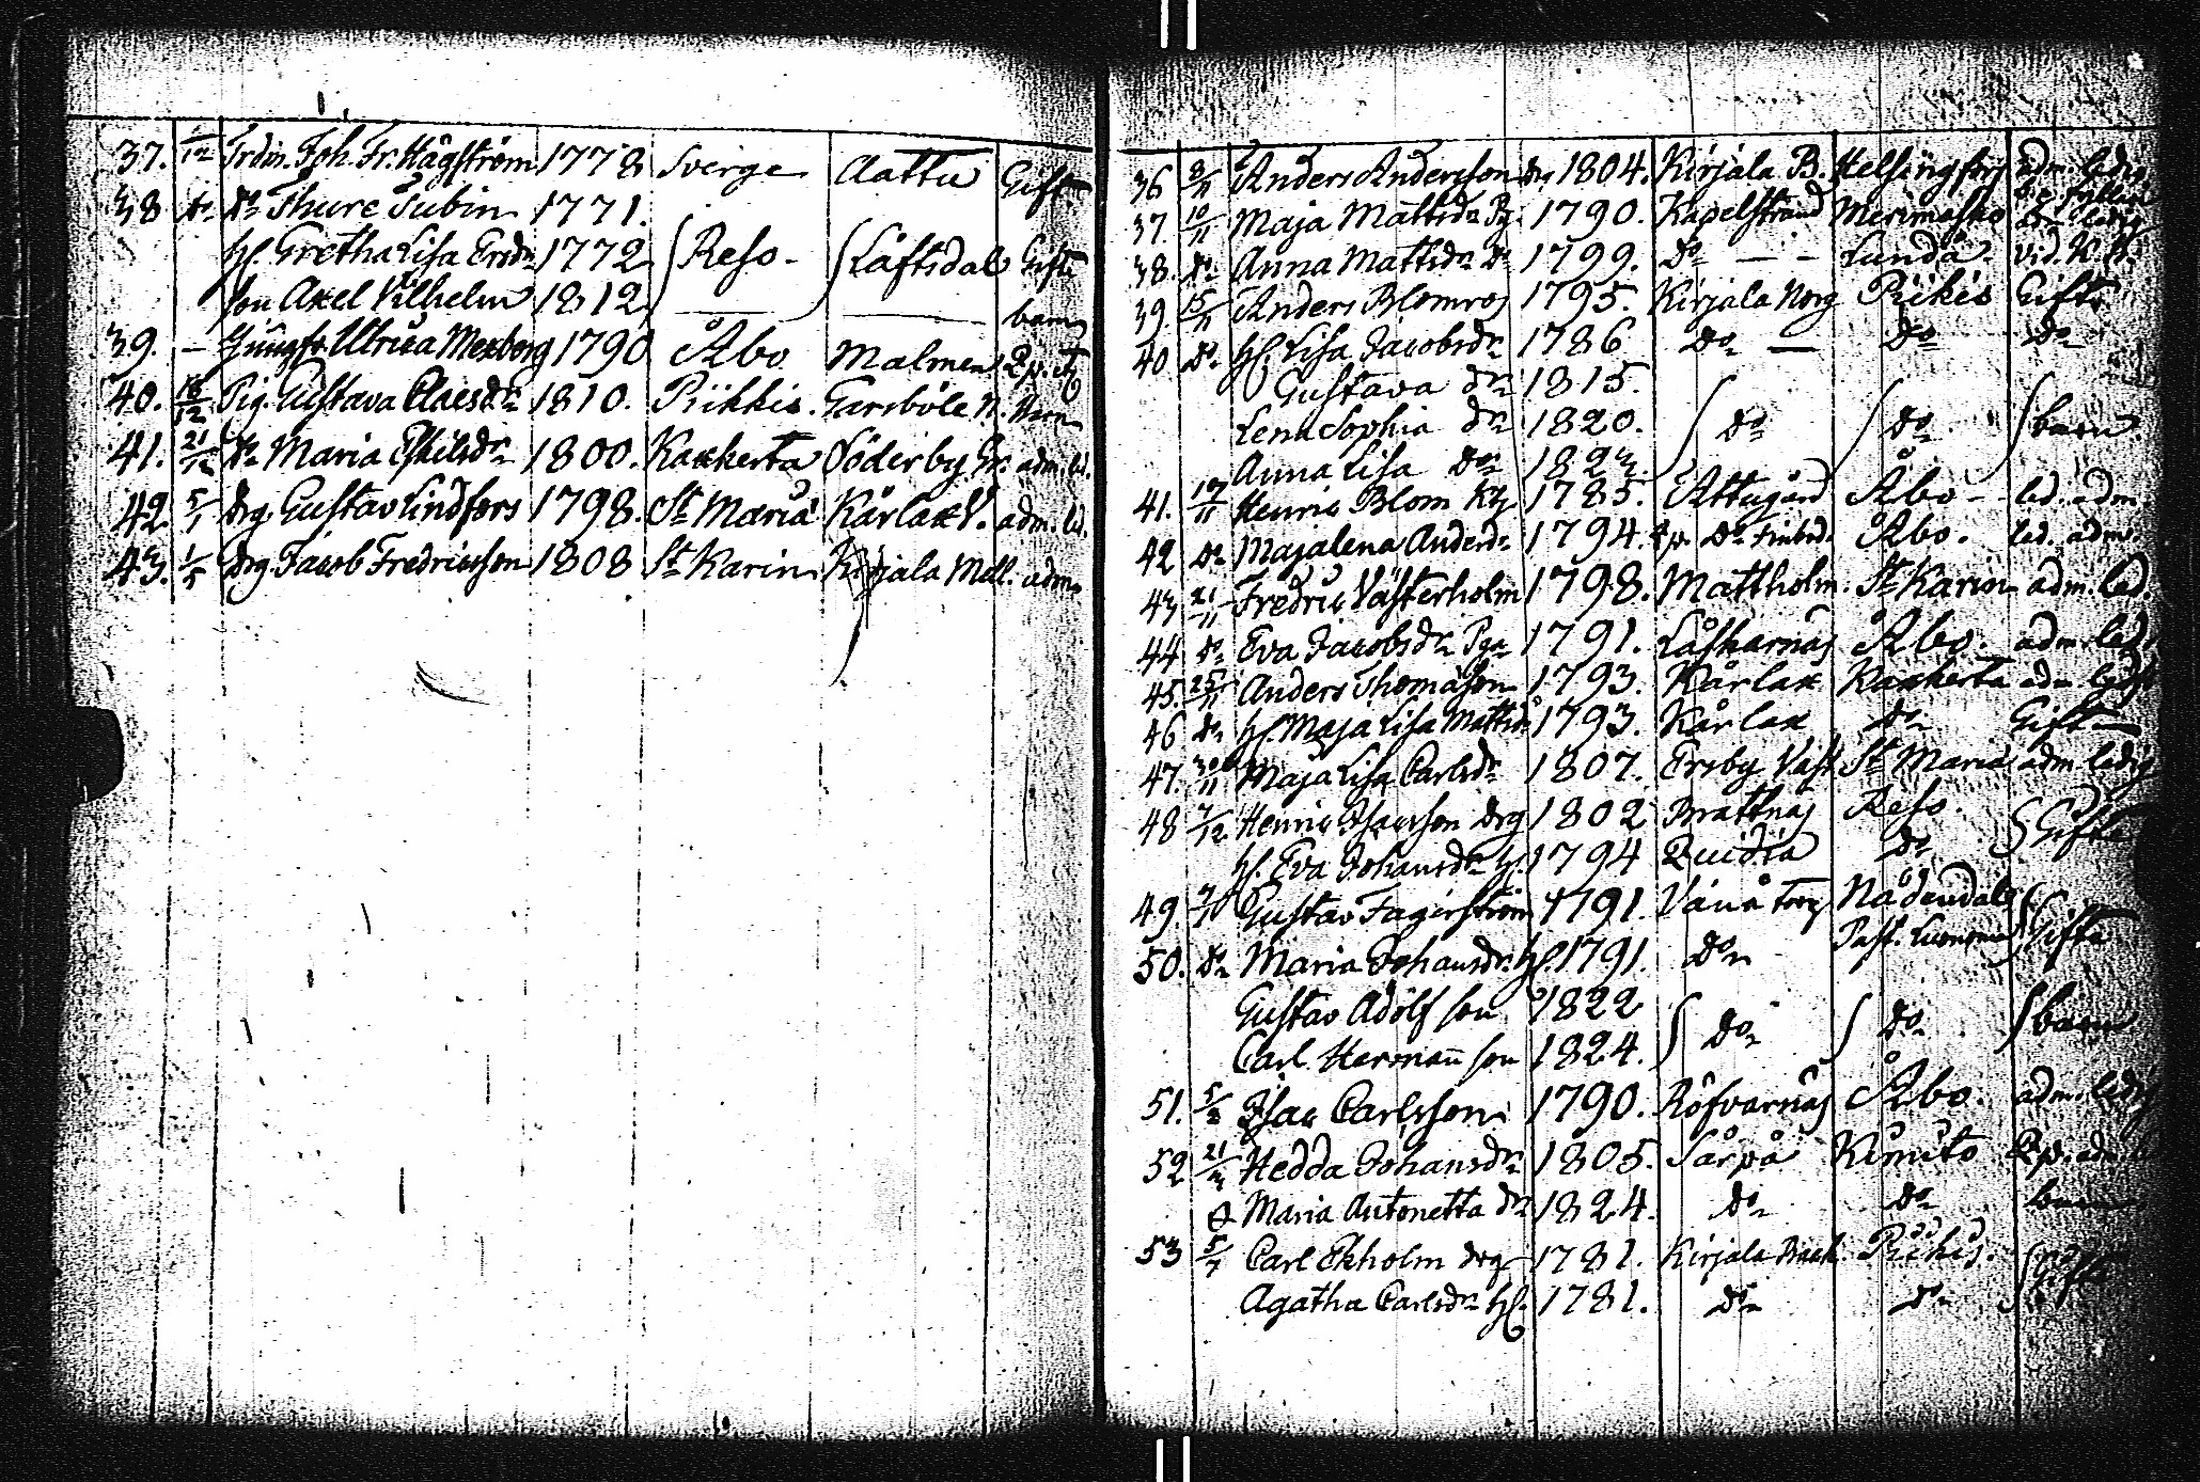 37. 1/12 Trdm. Joh. Fr. Hägström 1778 Sverge Aattu Gift
38 do Do Thure Tubin 1771.
h. Gretha Lisa Ersdr 1772 Reso - Låftsdal Gifte
son Axel Vilhelm 1812 barn
39. - Jungfr Ulrica Mexborg 1790 Åbo Malmen
40. 16/12 Pig. Gustava Claesdr 1810. Piikkis. Garsböle N.
41. 21/12 Do Maria Eskilsdr 1800. Kaxkerta Söderby Gr. adm. led.
42 5/1 drg Gustav Lindfors 1798. St Maria Kårlax V. adm. led.
43. 1/5 drg Jacob Fredricsson 1808 St Karin Kirjala Mell. adm.
36 8/11 Anders Andersson drg 1804. Kirjala B. Helsingfors adm. ledig
37. 10/11 Maja Mattsdr Pg. 1790. Kapelstrand Merimasko
38. do Anna Mattsdr do 1799. do - - Lunda -
39. 15/11 Anders Blomros 1795. Kirjala Norg Piikis Gifte
40 do h. Lisa Jacobsdr 1786 do - do do
Gustava dr 1815.
Lena Sophia dr 1820. do do barn
Anna Lisa dor
41. 17/11 Henric Blom 1785. Attugård Åbo - led. adm.
42 do Majalena Andersdr 1794. Åbo. led. adm.
43 21/11 Fredric Västerholm 1798. Mattholm. St Karin adm. led.
44 do Eva Jacobsdr Pga 1791. Låfkarnäs Åbo. adm. led.
45. 25/11 Anders Thomasson 1793. Kårlax Kaxkerta adm.
46 do h. Maja Lisa Mattsdr 1793. Kårlax do Gift
47. 30/11 Maja Lisa Carlsdr 1807. Ersby Väst St Maria adm. ledig
48 7/12 Henric Isacsson drg 1802 Brattnäs Reso. Gifte
h. Eva Johansdr h. 1794 Quidia do
49 Gustav Fagerström 1791. Vånå Torg Nådendal Gifte
50. do Maria Johansdr h. 1791. do Past.
Gustav Adolf son 1822
Carl Herman son 1824. do do barn
51. Isac Carlsson 1790. Röfvarnäs Åbo. adm. ledig
52 Hedda Johansdr 1805. Sårpå Kimito
Maria Antonetta dr 1824. do do barn
53 5/7 Carl Ekholm drg 1781. Kirjala Back Piikis. Gifte
Agatha Carlsdr h. 1781. do do